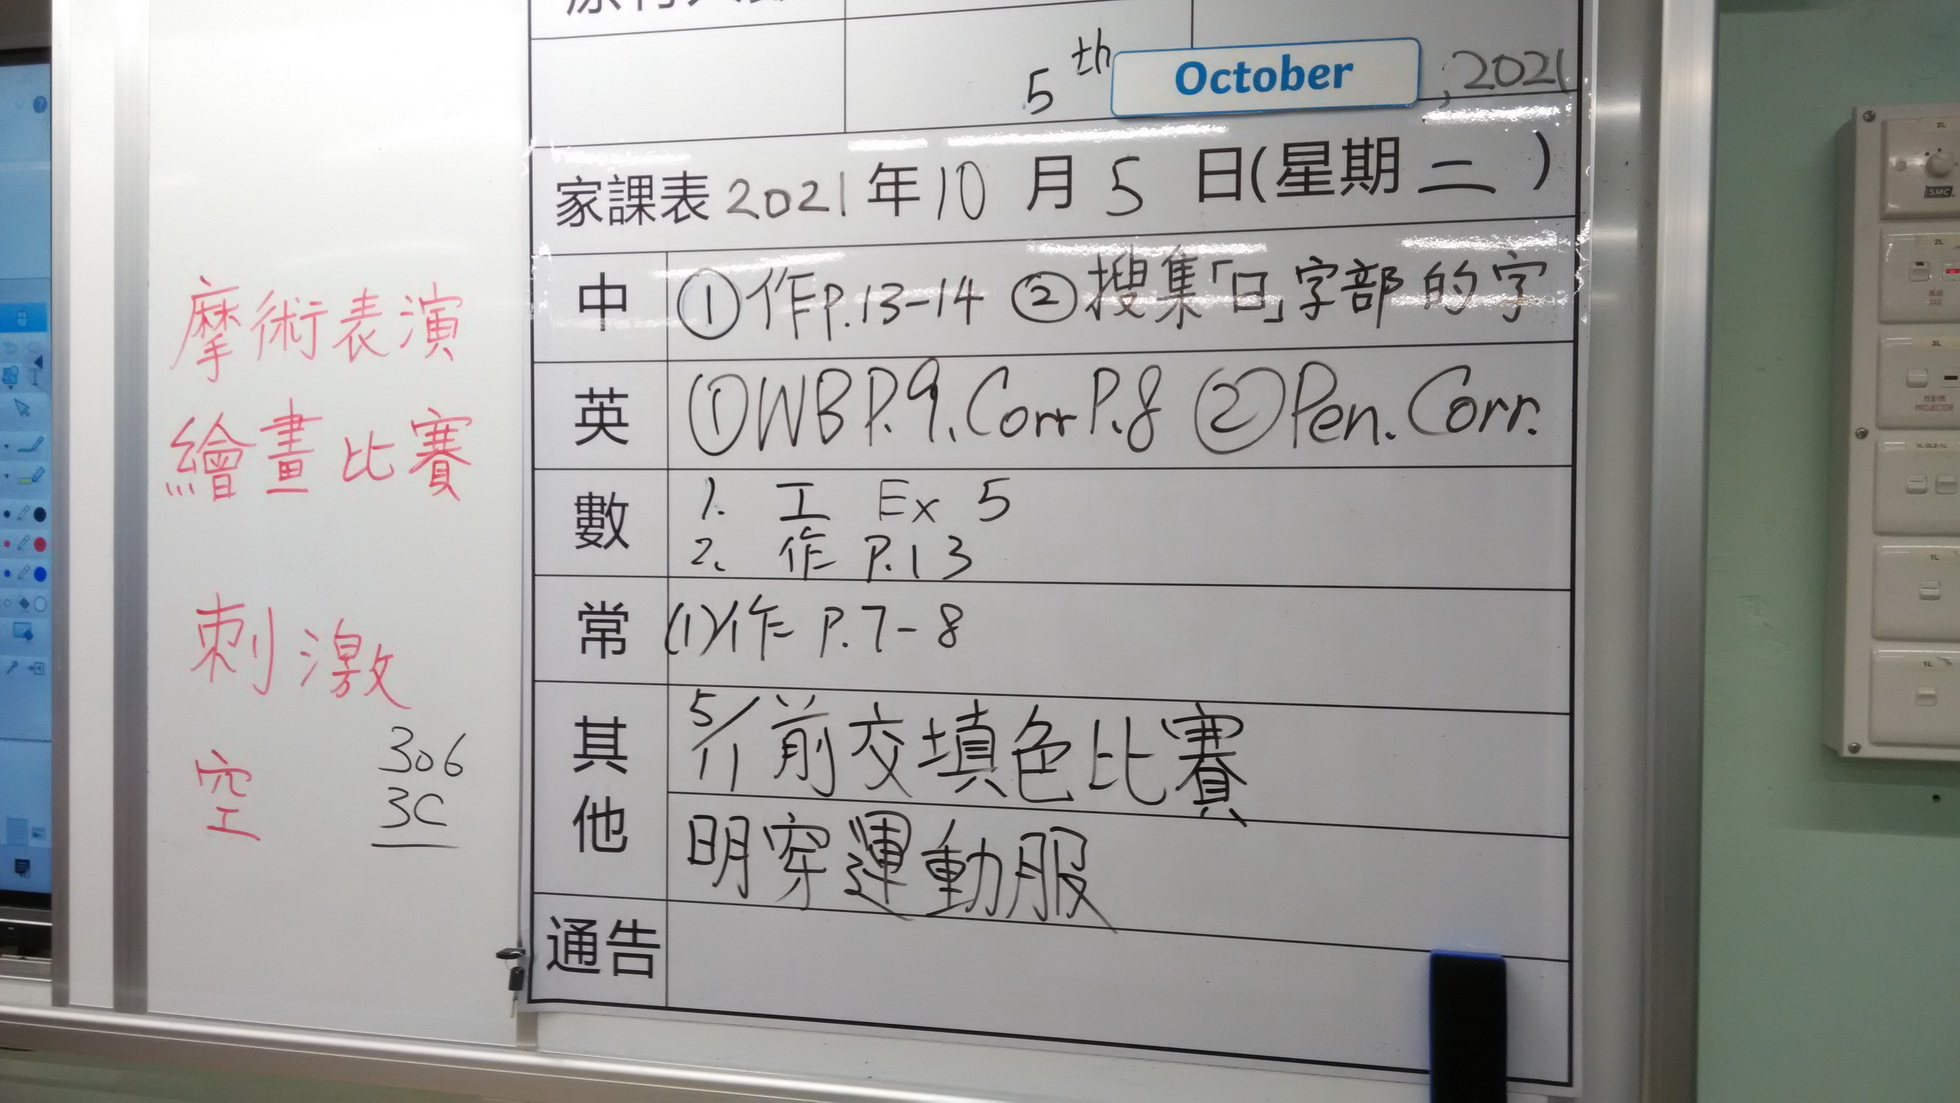 摩術表演
繪畫比賽
刺激
空
306
3C
5th October, 2021
家課表2021年10月5日(星期二)
中 ①作P.13-14 ②搜集「日」字部的字
英 ①WB P.9. Corr P.8 ②Pen. Corr.
數 1. 工 Ex 5
2. 作 P.13
常 (1)作 P.7-8
其他 5/11前交填色比賽
明穿運動服
通告